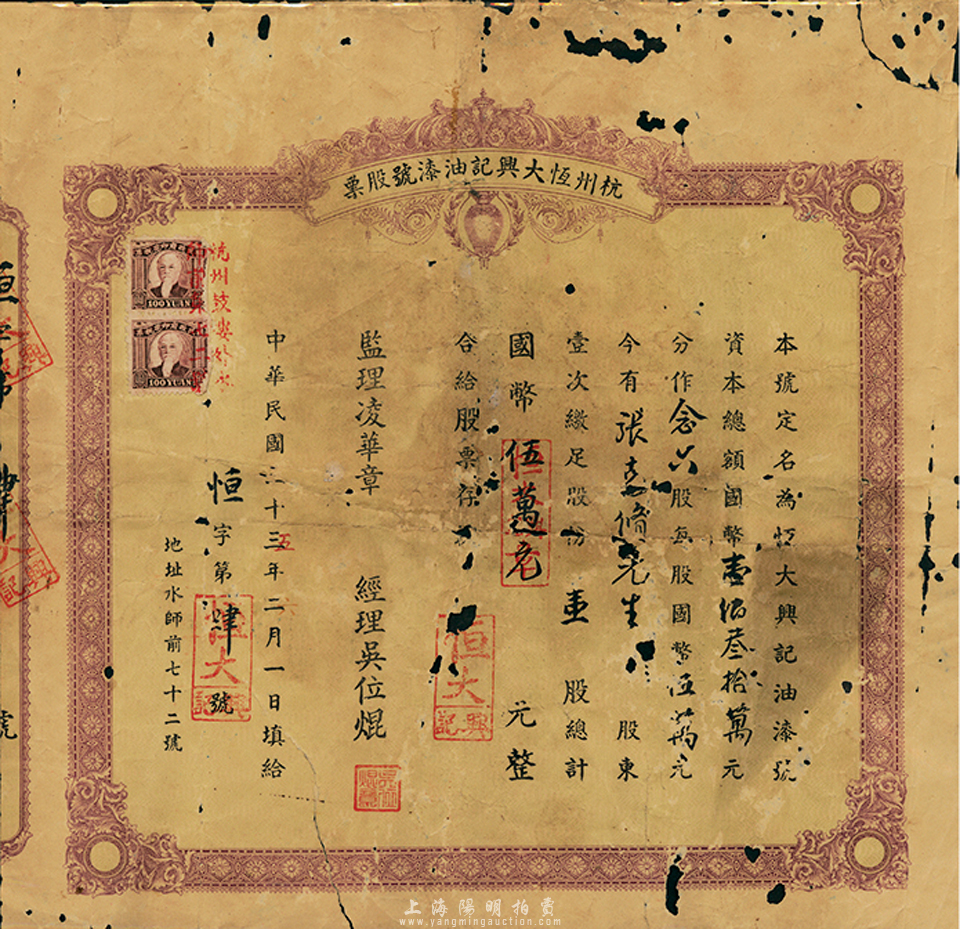 杭州恆大興記油漆號股票
本號定名為恆大興記油漆號
資本總額國幣壹佰叁拾萬元
分作念六股每股國幣伍萬元
今有張 脩先生 股東
壹次繳足股份壹股總計
國幣伍萬元 元整
合給股票存
監理凌華章 經理吳位焜
中華民國三十三年二月一日填給
五
恒字第肆號
地址水師前七十二號
恒大
興記
恒大
興記
杭州鼓
100 YUAN
100 YUAN
恒字第肆 號
興記
上海陽明拍賣
www.yangmingauction.com